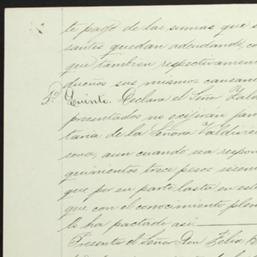 te pago de las sumas que s
santes quedan adeudando, co
que tambien respectivamen
dueños sus mismos causan
5º Quinto. Declara el Señor Zald
presentados no ejercian
taria de la Señora Zaldiv
sona, aun cuando sea respon
quinientos trece pesos
que por su parte hasta en este
que con el conocimiento plen
lo ha pactado asi
Presente el Señor Don Felix